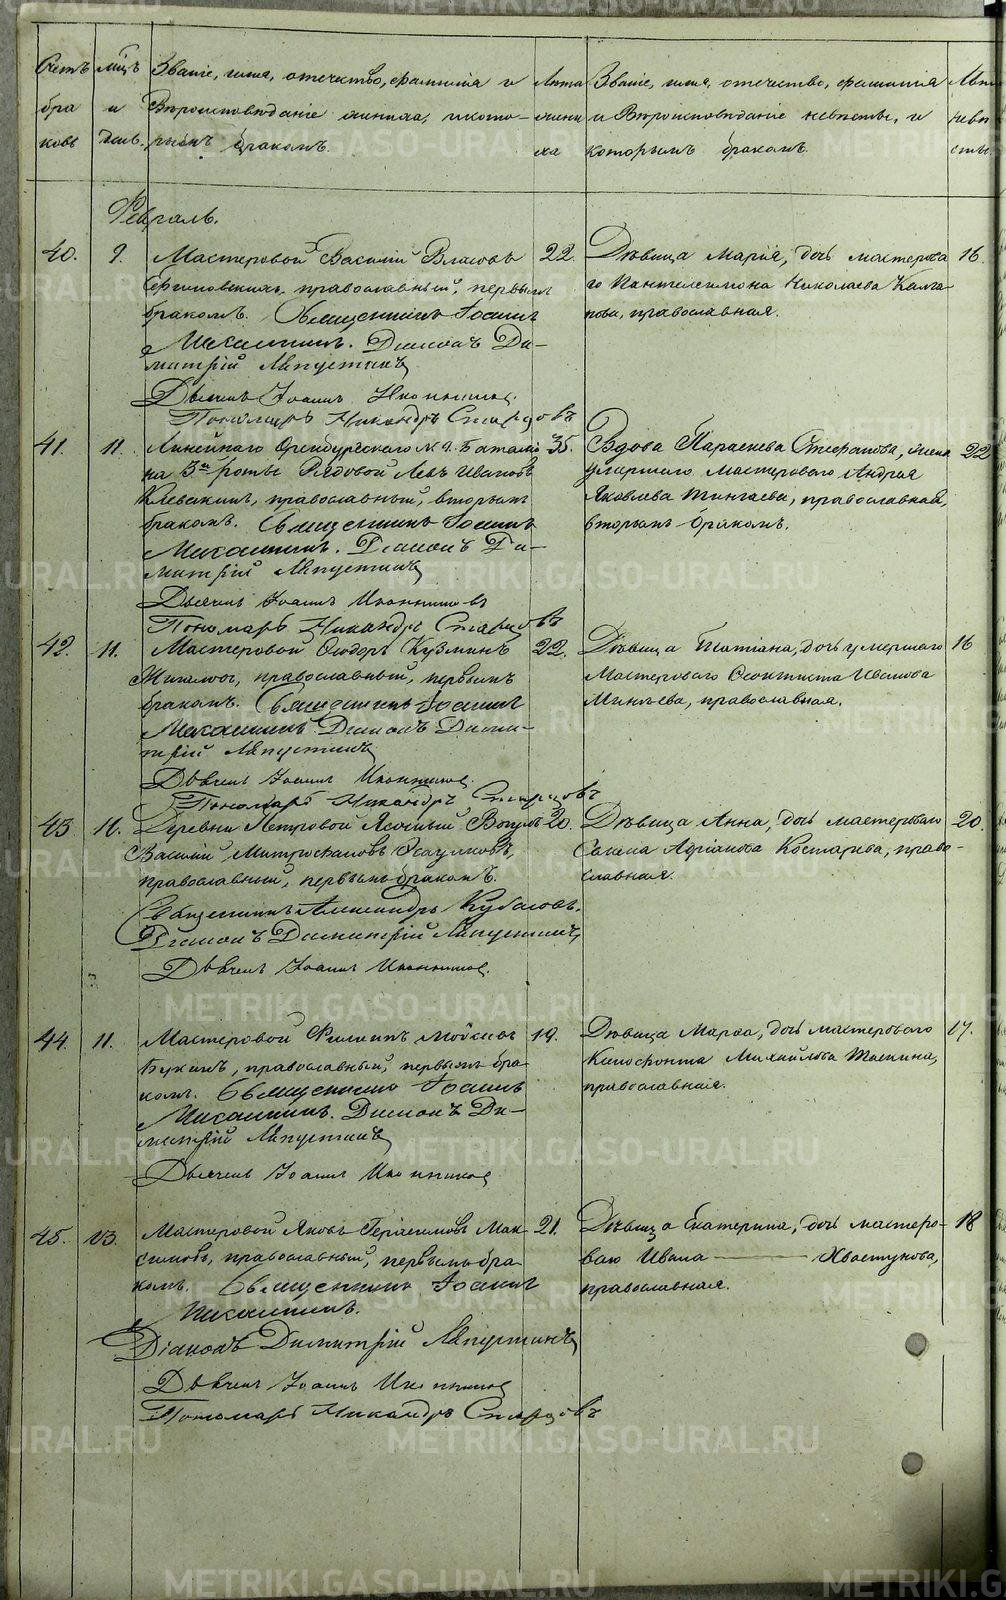 Счетъ
бра
ковъ
Мц̃ъ
и
день.
Званіе, имя, отечество, фамилія и
Вѣроисповѣданіе жениха, и кото-
рымъ бракомъ.
Лѣта
жени
ха
Званіе, имя, отечество, фамилія
и Вѣроисповѣданіе невѣсты, и
которымъ бракомъ.
Лѣта
невѣ
сты.
Февраль.
40.
9.
Мастеровой Василій Власовъ
православный, первымъ
бракомъ. Священникъ Іоаннъ
Діаконъ Ди-
митрій Ляпустинъ
Дьячекъ Іоаннъ Иконниковъ
Пономарь Никандръ Старцовъ
22.
Дѣвица Марія, дочь мастерова
го Пантелеимона Николаева Калга
нова, православная.
16.
41.
11.
Линейнаго Оренбургскаго № 9. Баталіо
на 3й роты Рядовой Левъ Ивановъ
православный, вторымъ
бракомъ. Священникъ Іоаннъ
Діаконъ Ди-
митрій Ляпустинъ
Дьячекъ Іоаннъ Иконниковъ
Пономарь Никандръ Старцовъ
35.
Вдова Параскева Стефанова, жена
умершаго мастероваго Андрея
Яковлева православная,
вторымъ бракомъ.
22
42.
11.
Мастеровой Ѳедоръ Кузминъ
православный, первымъ
бракомъ. Священникъ Іоаннъ
Діаконъ Дими-
трій Ляпустинъ
Дьячекъ Іоаннъ Иконниковъ.
Пономарь Никандръ Старцовъ
22.
Дѣвица Татіана, дочь умершаго
Мастероваго Ѳеоктиста Иванова
Минѣева, православная.
16
43.
11.
Деревни Петровой Ясачный Вогулъ
Василій Митрофановъ
православный, первымъ бракомъ.
Священникъ Александръ Кубасовъ.
Діаконъ Димитрій Ляпустинъ
Дьячекъ Іоаннъ Иконниковъ.
20.
Дѣвица Анна, дочь мастероваго
Адріанова Костарева, право-
славная.
20.
44.
11.
Мастеровой Филиппъ Мойсеевъ
Букинъ, православный, первымъ бра
комъ. Священникъ Іоаннъ
Діаконъ Ди-
митрій Ляпустинъ
Дьячекъ Іоаннъ Иконниковъ
19.
Дѣвица Марѳа, дочь мастероваго
Ксенофонта Михайлова
православная.
17.
45.
13.
Мастеровой Яковъ Герасимовъ Мак-
симовъ, православный, первымъ бра
комъ. Священникъ Іоаннъ
Діаконъ Димитрій Ляпустинъ
Дьячекъ Іоаннъ Иконниковъ
Пономарь Никандръ Старцовъ
21.
Дѣвица Екатерина, дочь мастеро-
ваго Ивана Хвастунова,
православная.
18
METRIKI.GASO-URAL.RU